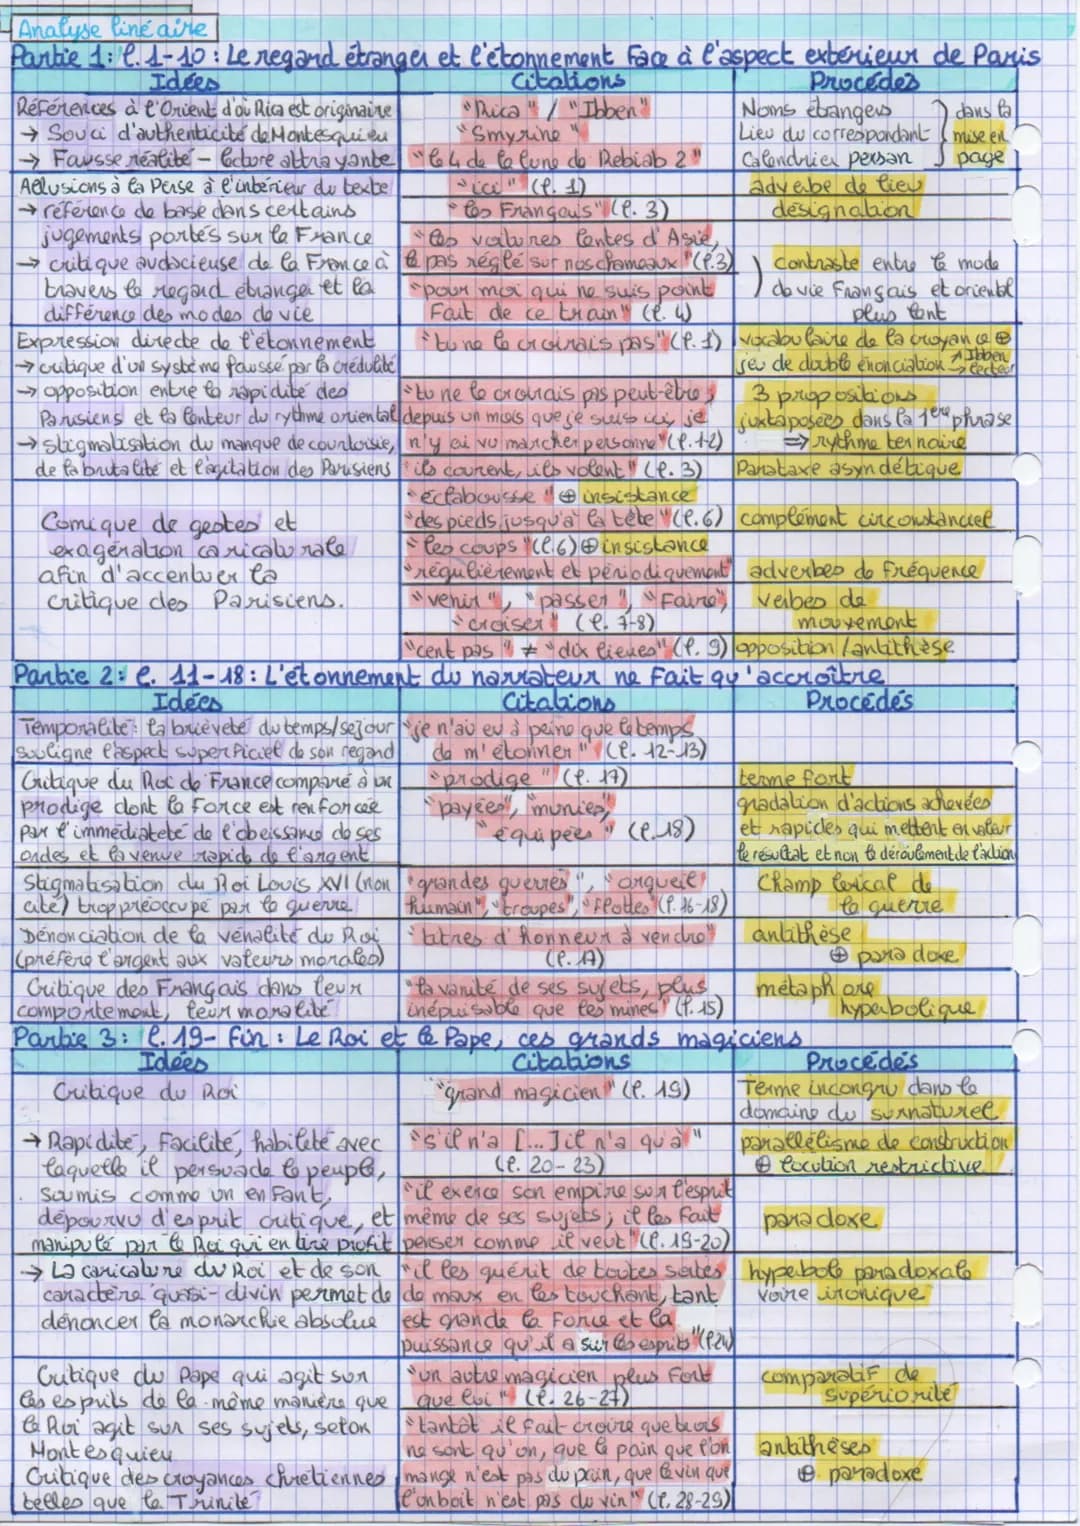 Analyse linéaire
Partie 1: l. 1-10 : Le regard étranger et l'étonnement face à l'aspect extérieur de Paris
Idées
Citations
Procédés
Références à l'Orient d'où Rica est originaire
→ Souci d'authenticité de Montesquieu
→ Fausse réalité - lecture attrayante
"Rica" / "Ibben"
"Smyrine"
"le 4 de la lune de Rebiab 2"
Noms étrangers
Lieu du correspondant
Calendrier persan
dans la
mise en
page
Allusions à la Perse à l'intérieur du texte
→ référence de base dans certains
jugements portés sur la France
→ critique audacieuse de la France à
travers le regard étranger et la
différence des modes de vie
"ici" (l. 1)
"les Français" (l. 3)
"les voitures lentes d'Asie,
le pas réglé sur nos chameaux" (l.3)
"pour moi qui ne suis point
fait de ce train" (l. 4)
adverbe de lieu
désignation
contraste entre le mode
de vie Français et oriental
plus lent
Expression directe de l'étonnement
→ critique d'un système faussé par la crédulité
→ opposition entre la rapidité des
Parisiens et la lenteur du rythme oriental
→ stigmatisation du manque de courtoisie,
de la brutalité et l'agitation des Parisiens
"tu ne le croirais pas" (l. 1)
"tu ne le croirais pas peut-être ;
depuis un mois que je suis ici, je
n'y ai vu marcher personne" (l. 1-2)
"ils courent, ils volent" (l. 3)
vocabulaire de la croyance ⊕
jeu de double énonciation
Ibben
lecteur
3 propositions
juxtaposées dans la 1ère phrase
⇒ rythme ternaire
Parataxe asyndétique
Comique de gestes et
exagération caricaturale
afin d'accentuer la
critique des Parisiens.
"éclabousse" ⊕ insistance
"des pieds jusqu'à la tête" (l. 6)
"les coups" (l.6) ⊕ insistance
"régulièrement et périodiquement"
"venir", "passer", "faire",
"croiser" (l. 7-8)
"cent pas" ≠ "dix lieues" (l. 9)
complément circonstanciel
adverbes de fréquence
verbes de
mouvement
opposition / antithèse
Partie 2: l. 11-18 : L'étonnement du narrateur ne fait qu'accroître
Idées
Citations
Procédés
Temporalité: la brièveté du temps/séjour
souligne l'aspect superficiel de son regard
"je n'ai eu à peine que le temps
de m'étonner" (l. 12-13)
Critique du Roi de France comparé à un
prodige dont la force est renforcée
par l'immédiateté de l'obéissance de ses
ordes et la venue rapide de l'argent
"prodige" (l. 17)
"payées", "munies",
"équipées" (l.18)
terme fort
gradation d'actions achevées
et rapides qui mettent en valeur
le résultat et non le déroulement de l'action
Stigmatisation du Roi Louis XVI (non
cité) trop préoccupé par la guerre
"grandes guerres", "orgueil
humain", "troupes", "flottes" (l. 16-18)
Champ lexical de
la guerre
Dénonciation de la vénalité du Roi
(préfère l'argent aux valeurs morales)
"titres d'honneur à vendre"
(l. 17)
antithèse
⊕ paradoxe
Critique des Français dans leur
comportement, leur moralité
"la vanité de ses sujets, plus
inépuisable que les mines" (l. 15)
métaphore
hyperbolique
Partie 3: l. 19- fin : Le Roi et le Pape, ces grands magiciens
Idées
Citations
Procédés
Critique du Roi
"grand magicien" (l. 19)
Terme incongru dans le
domaine du surnaturel
→ Rapidité, facilité, habileté avec
laquelle il persuade le peuple,
soumis comme un enfant,
dépourvu d'esprit critique, et
manipulé par le Roi qui en tire profit
"s'il n'a [...] il n'a qu'à"
(l. 20-23)
"il exerce son empire sur l'esprit
même de ses sujets ; il les fait
penser comme il veut" (l. 19-20)
parallélisme de construction
⊕ locution restrictive
paradoxe
→ La caricature du Roi et de son
caractère quasi-divin permet de
dénoncer la monarchie absolue
"il les guérit de toutes sortes
de maux en les touchant, tant
est grande la force et la
puissance qu'il a sur les esprits" (l.24)
hyperbole paradoxale
voire ironique
Critique du Pape qui agit sur
les esprits de la même manière que
le Roi agit sur ses sujets, selon
Montesquieu
Critique des croyances chrétiennes
telles que la Trinité
"un autre magicien plus fort
que lui" (l. 26-27)
"tantôt il fait croire que trois
ne sont qu'on, que le pain que l'on
mange n'est pas du pain, que le vin que
l'on boit n'est pas du vin" (l. 28-29)
comparatif de
supériorité
antithèses
⊕ paradoxe